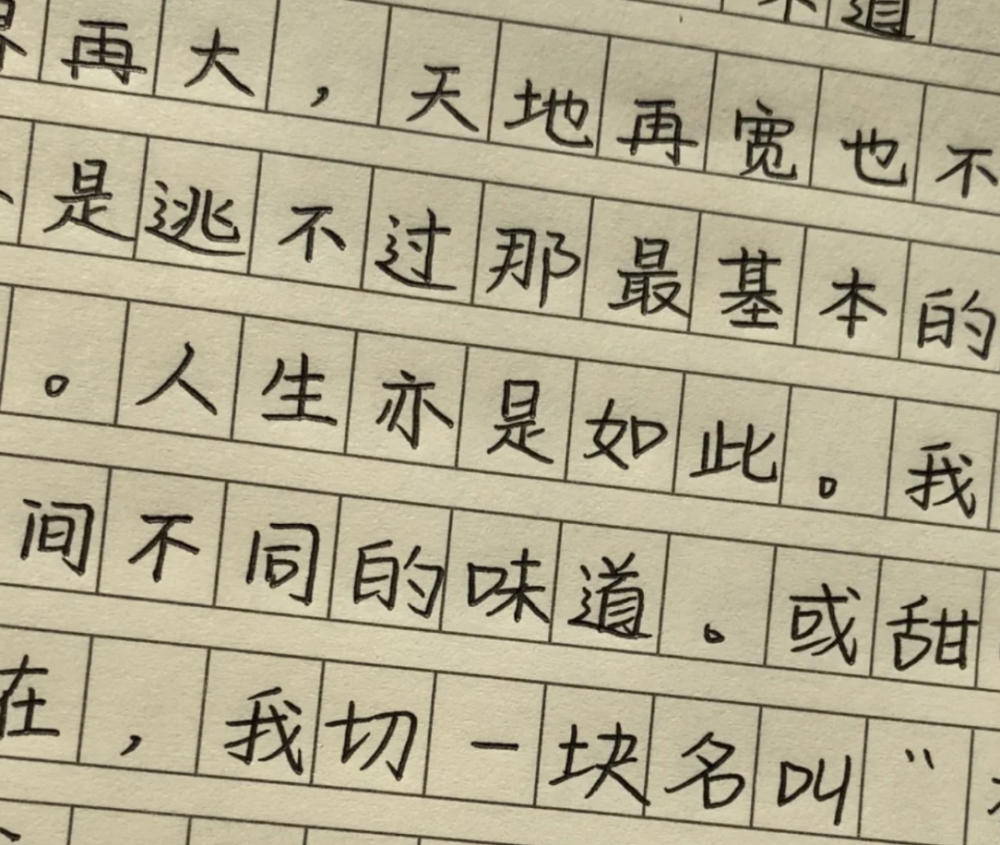 道
再大，天地再宽也不
是逃不过那最基本的
。人生亦是如此。我
间不同的味道。或甜
在，我切一块名叫“